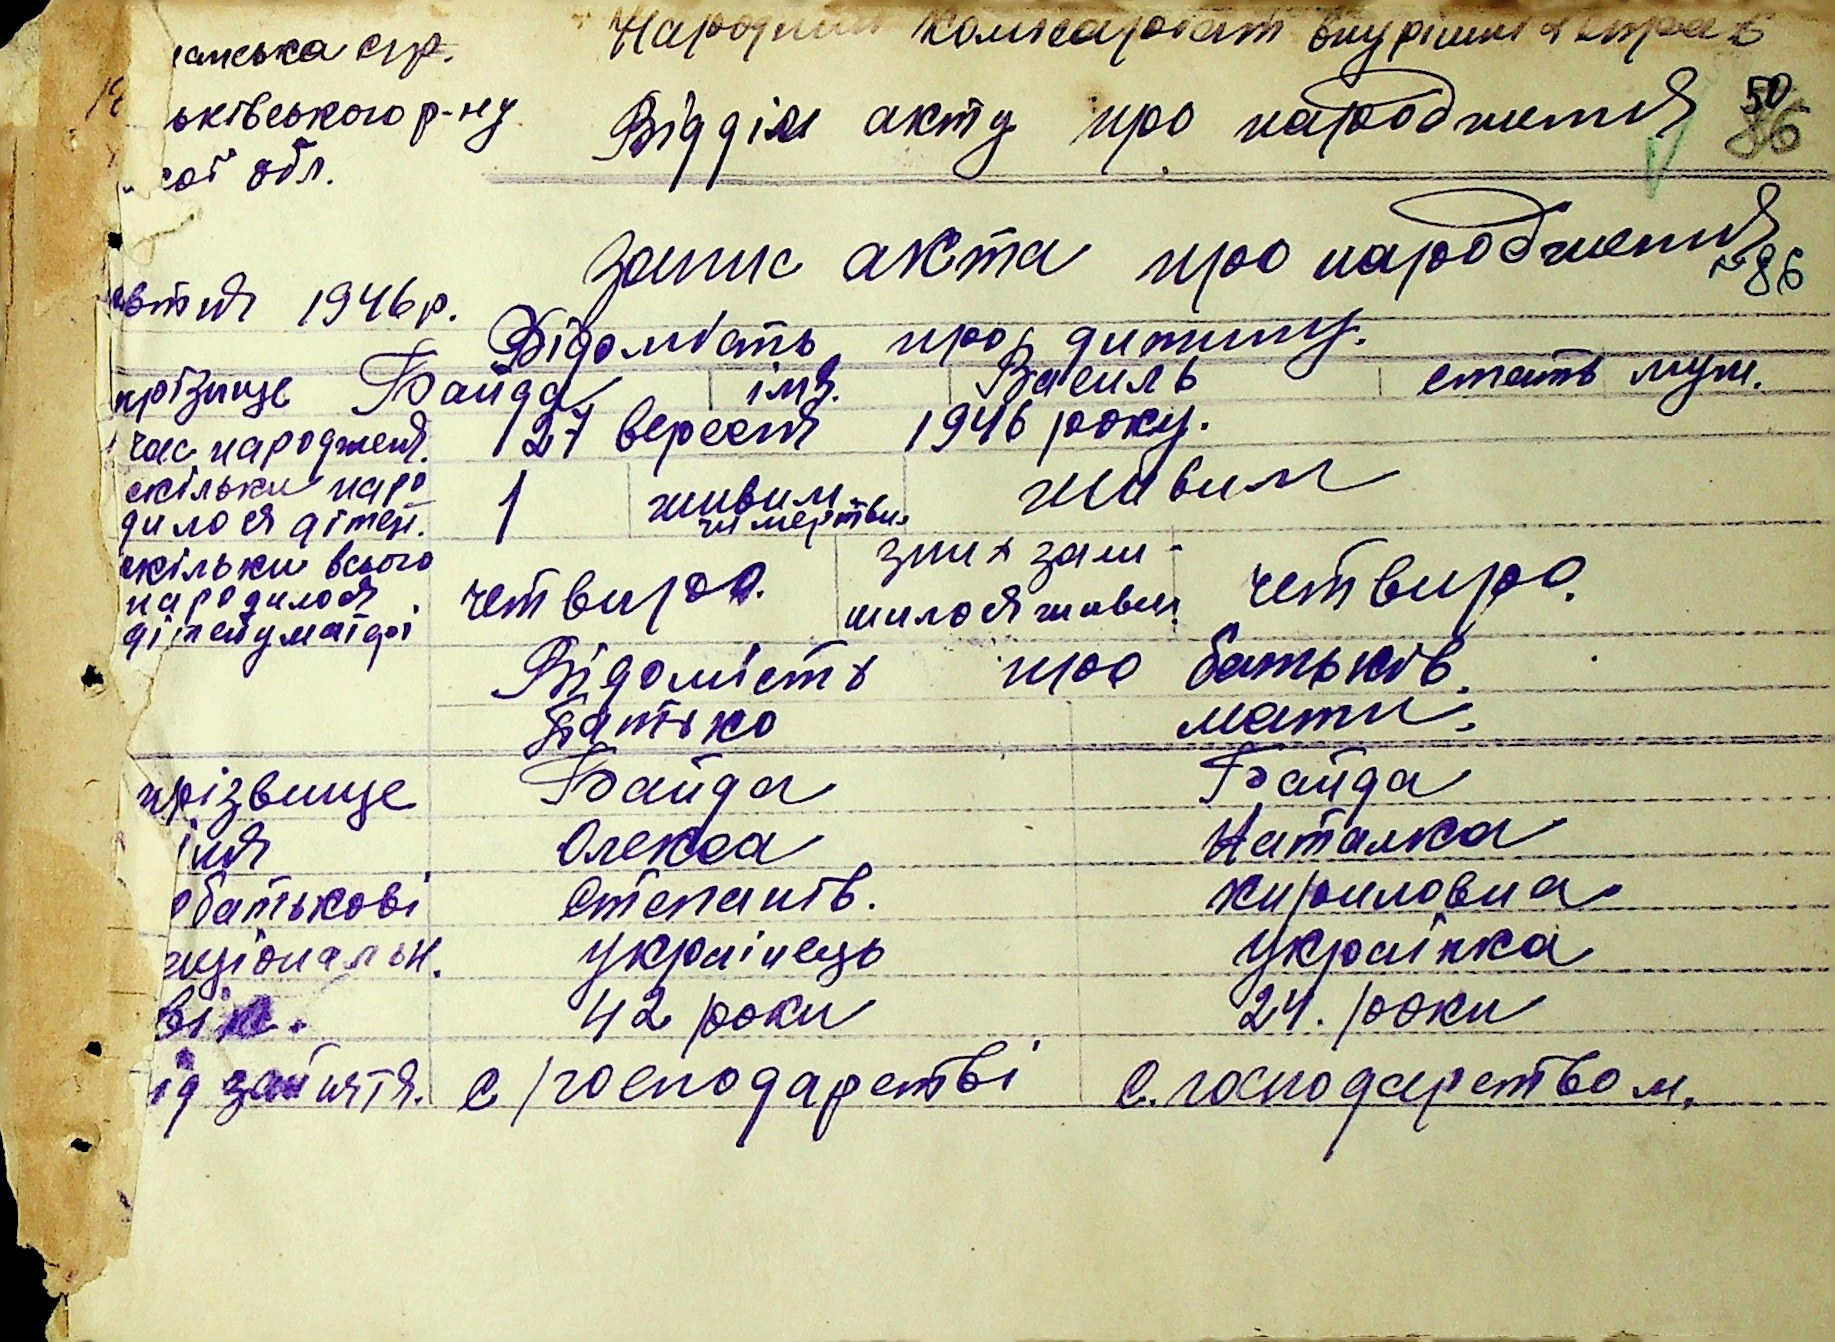 Народний комісаріат внутрішніх справ
ська с/р.
ьківського р-ну
Відділ акту про народження
50
86
кої обл.
Запис акта про народження
№86
овтня 1946 р.
Відомість про дитину.
прізвище Байда імя. Василь стать муж.
час народжен. 27 вересня 1946 року.
скільки наро
дилося дітей. 1 живим
чи мертвим живим
скільки всього
народилося
дітей у матері четверо.
з них зали-
шилося живим четверо.
Відомість про батьків.
Батько мати.
прізвище Байда Байда
імя Олекса Наталка
обатькові Степанів. Кириловна
аціональн. українець українка
вік. 42 роки 24. роки
ід заняття. с/господарстві с. господарством.